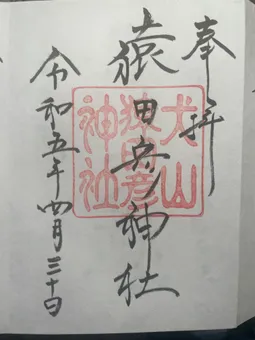 奉拝
猿田彦神社
犬山
猿田彦
神社
令和五年四月三十日